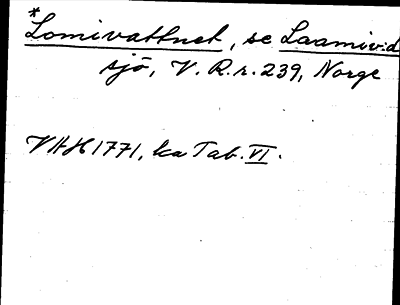 *Lomivattnet, se Laamivid
sjö, V. R.r. 239, Norge
VAH 1771, ka Tab. VI.